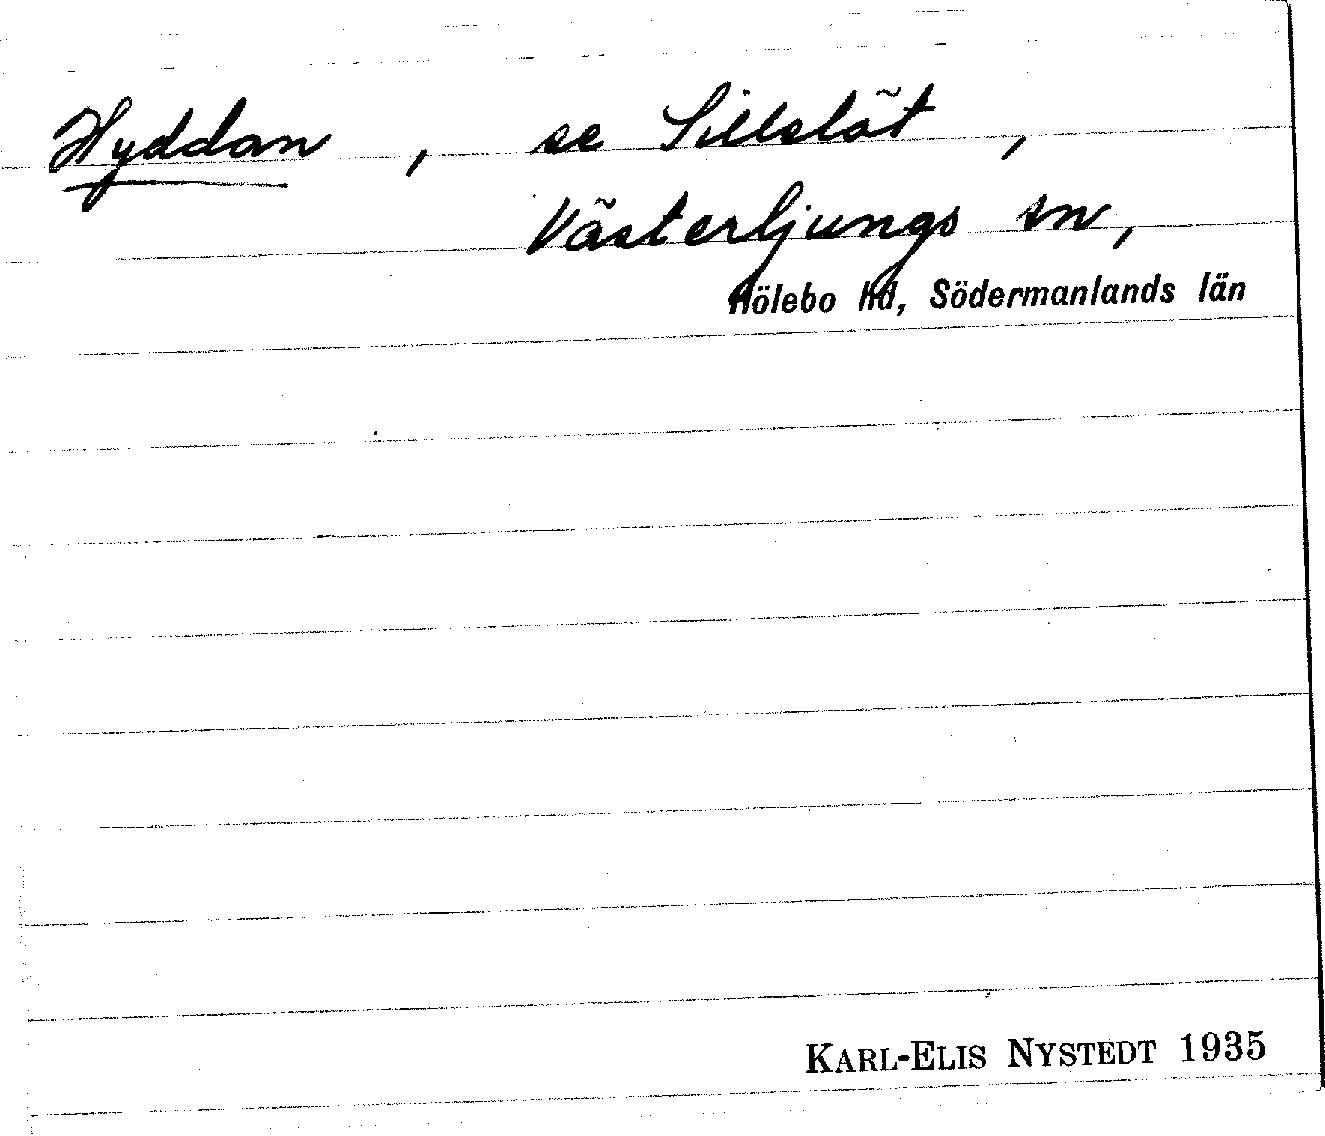 Hyddan, se Sillslät,
Västerljungs sn,
Hölebo hd, Södermanlands län
KARL-ELIS NYSTEDT 1935